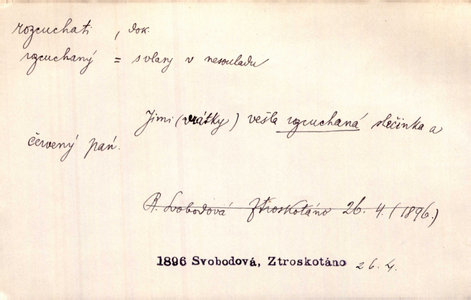 rozcuchati, dok.
rozcuchaný = s vlasy v nesouladu
Jimi (vrátky) vešla rozcuchaná slečinka a
červený pán.
R. Svobodová Ztroskotáno 26. 4. (1896.)
1896 Svobodová, Ztroskotáno 26.4.